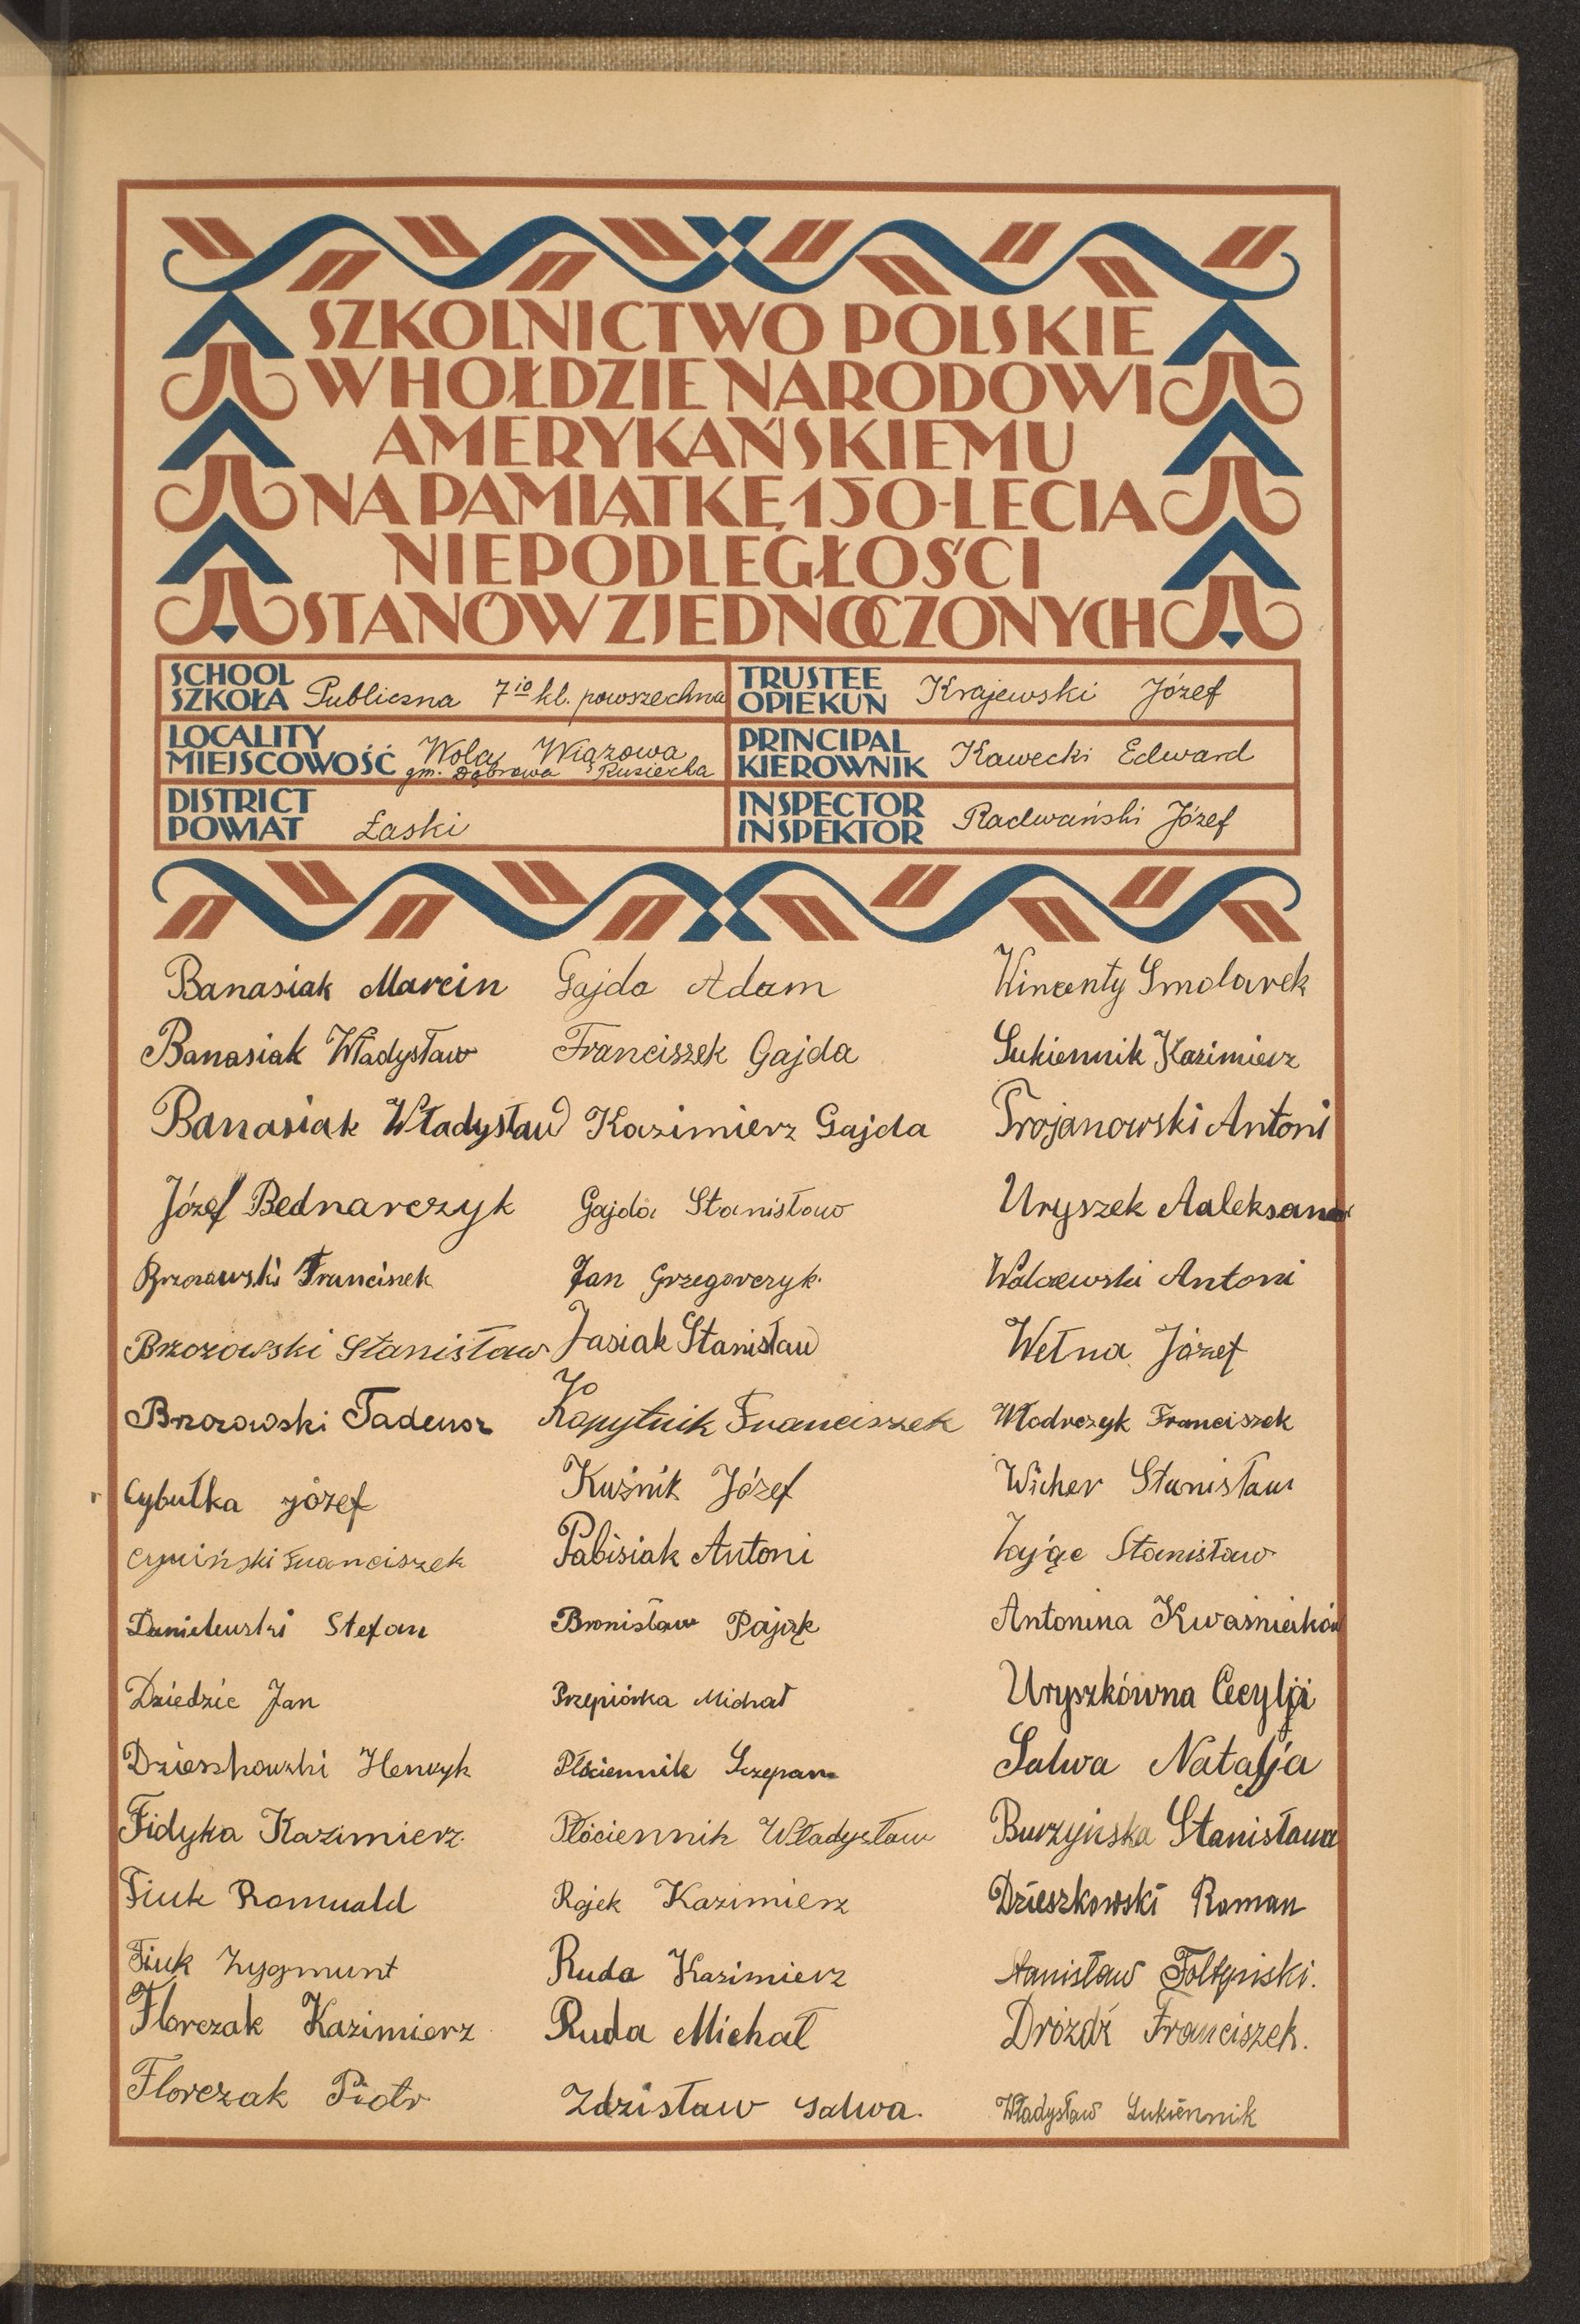 SZKOLNICTWO POLSKIE
W HOŁDZIE NARODOWI
AMERYKAŃSKIEMU
NA PAMIĄTKĘ 150-LECIA
NIEPODLEGŁOŚCI
STANÓW ZJEDNOCZONYCH
SCHOOL
SZKOŁA Publiczna 7io kl. powszechna
LOCALITY
MIEJSCOWOŚĆ Wola Wiązowa
gm. Dąbrowa Rusiecka
DISTRICT
POWIAT Łaski
TRUSTEE
OPIEKUN Krajewski Józef
PRINCIPAL
KIEROWNIK Kawecki Edward
INSPECTOR
INSPEKTOR Radwański Józef
Banasiak Marcin
Banasiak Władysław
Banasiak Władysław
Józef Bednarczyk
Brzozowski Franciszek
Brzozowski Stanisław
Brzozowski Tadeusz
Cybułka józef
Franciszek
Danielewski Stefan
Dziedzic Jan
Dzieszkowski Henryk
Fidyka Kazimierz.
Fiuk Romuald
Fiuk Zygmunt
Florczak Kazimierz
Florczak Piotr
Gajda Adam
Franciszek Gajda
Kazimierz Gajda
Gajda Stanisław
Jan Grzegorczyk.
Jasiak Stanisław
Kopytnik Franciszek
Kuźnik Józef
Pabisiak Antoni
Bronisław Pająk
Przepiórka Michał
Płóciennik Szczepan
Płóciennik Władysław
Rojek Kazimierz
Ruda Kazimierz
Ruda Michał
Zdzisław Salwa.
Wincenty Smolarek
Sukiennik Kazimierz
Trojanowski Antoni
Uryszek Aaleksander
Walczewski Antoni
Wełna Józef
Włodrczyk Franciszek
Wicher Stanisław
Zając Stanisław
Antonina Kwaśniaków
Uryszkówna Cecylja
Salwa Natalja
Burzyńska Stanisława
Dzieszkowski Roman
Stanisław Foltyński.
Dróżdż Franciszek.
Władysław Sukiennik